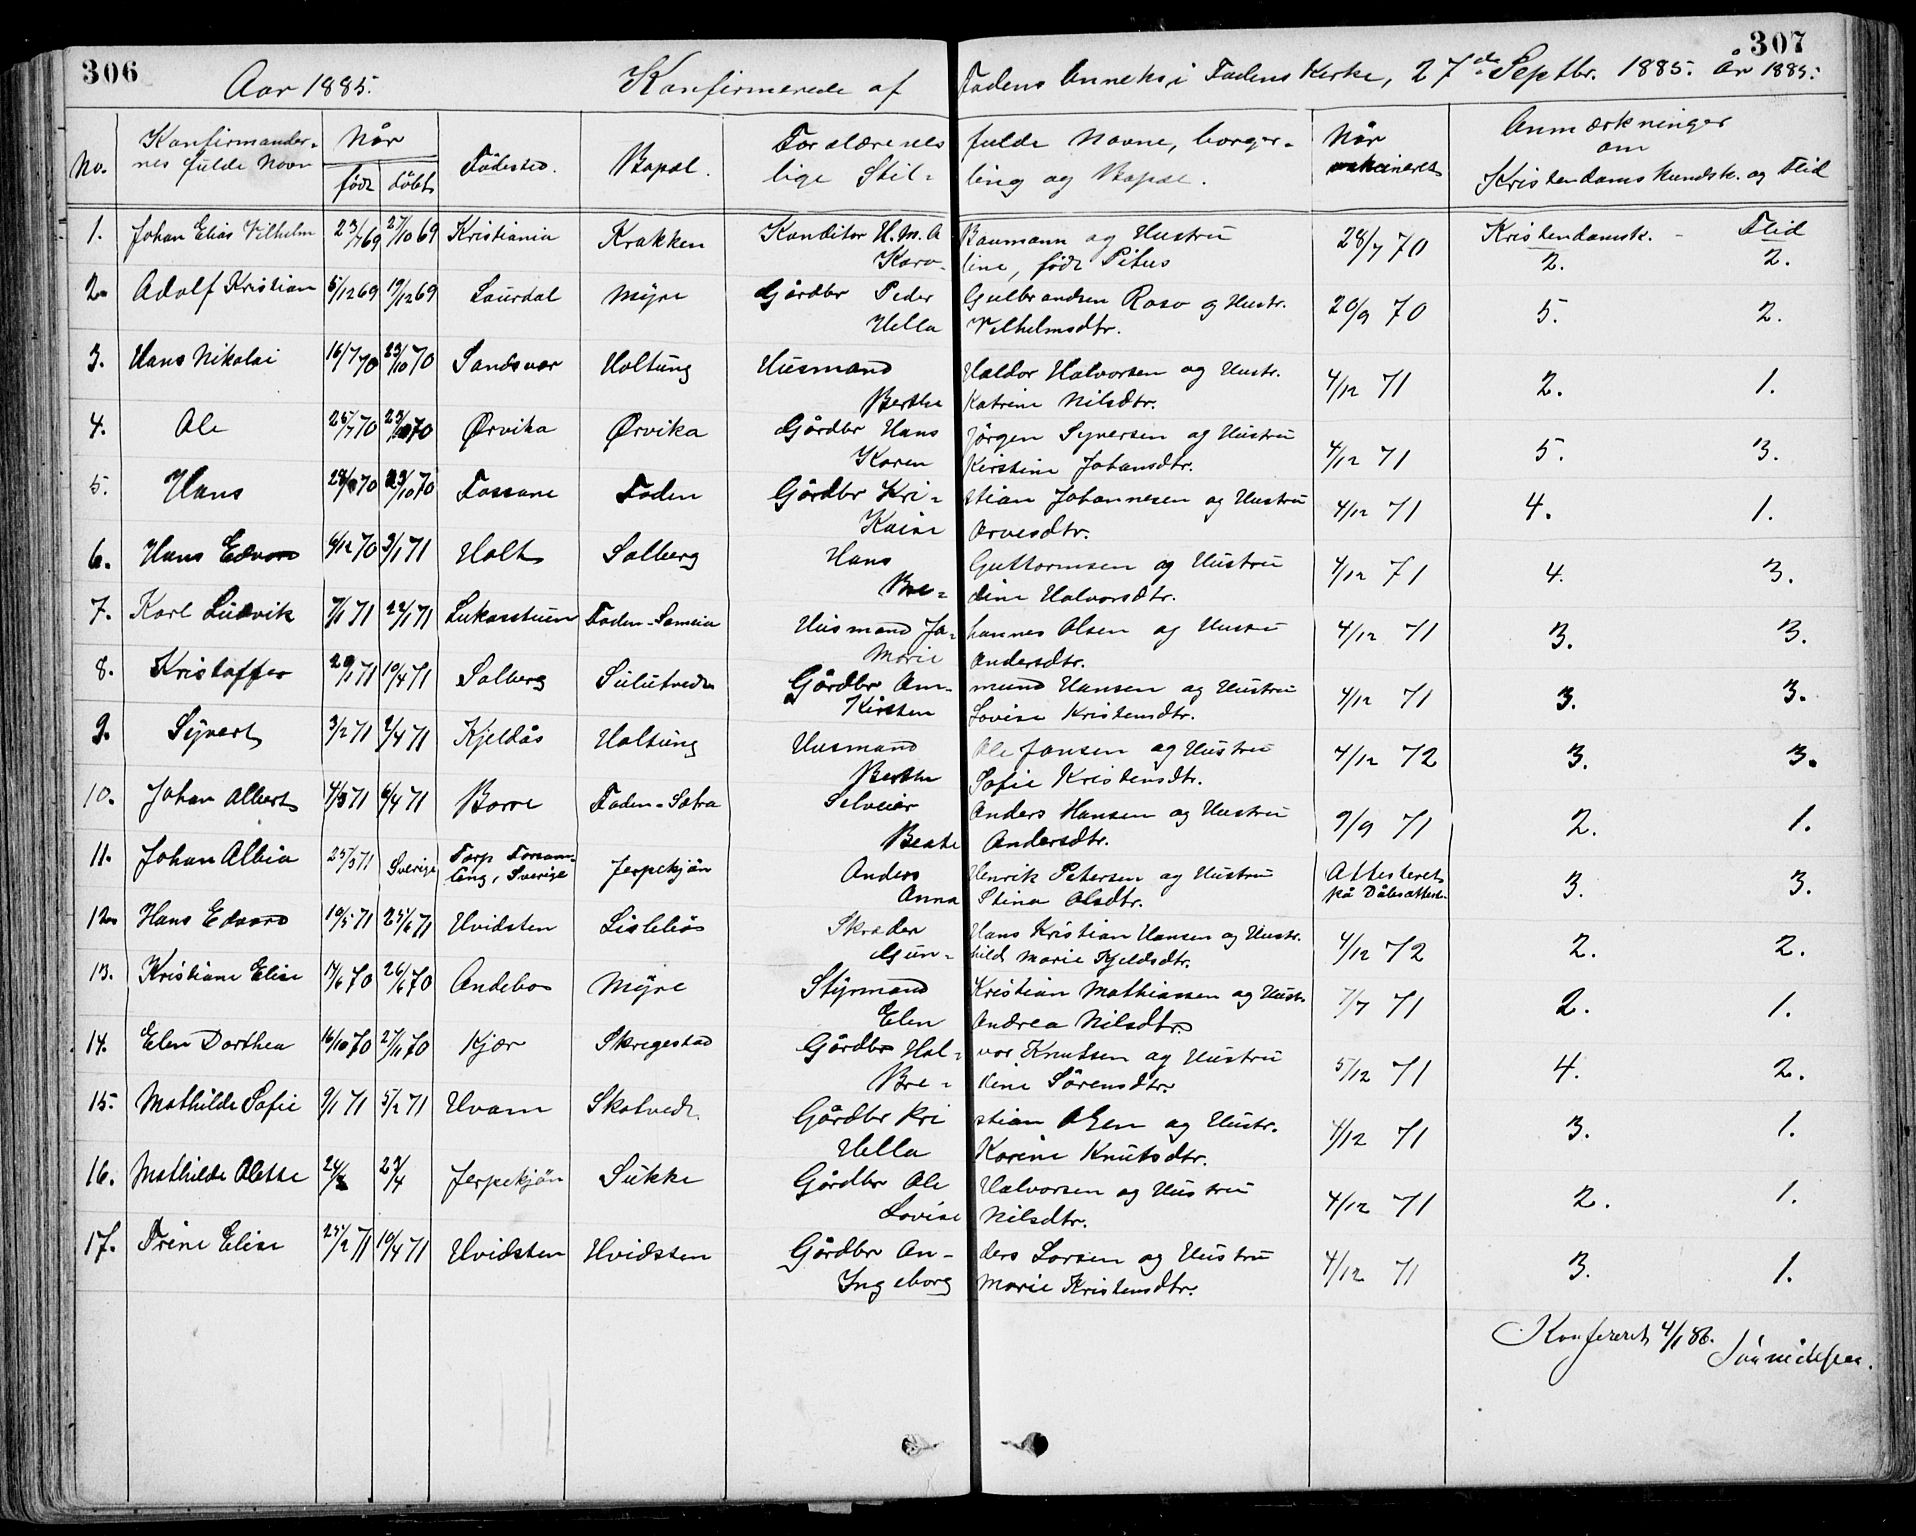 306 307
Aar 1885. Konfirmerede af Fodens Anneks i Fodens Kirke, 27de Septbr. 1885. År 1885.
No. Konfirmander- Når Fødested. Bopæl. Forældrenes fulde Navne, borger- Når Anmærkninger
nes fulde Navn født døbt lige Stil- ling og Bopæl. vakcineret om
Kristendoms Kundsk. og Flid
1. Johan Elias Vilhelm 23/7 69 27/10 69 Kristiania Krakken Konditor H. M. A Baumann og Hustru 28/7 70 Kristendomsk. - Flid
Karo- line, født Peters 2. 2.
2. Adolf Kristian 5/12 69 19/12 69 Laurdal Myre Gårdbr Peder Gulbrandsen Roso og Hustr. 20/9 70 5. 2.
Hella Vilhelmsdtr.
3. Hans Nikolai 16/7 70 23/10 70 Sandsvær Holtung Husmand Haldor Halvorsen og Hustr. 4/12 71 2. 1.
Berthe Katrine Nilsdtr.
4. Ole 25/7 70 23/10 70 Ørvika Ørvika Gårdbr Hans Jørgen Syversen og Hustru 4/12 71 5. 3.
Karen Kirstine Johansdtr.
5. Hans 70 23/10 70 Fossane Foden Gårdbr Kri- stian Johannesen og Hustru 4/12 71 4. 1.
Kaise Arvesdtr.
6. Hans Edvard 6/12 70 3/1 71 Holt Solberg Hans Guttormsen og Hustru 4/12 71 4. 3.
Bre- dine Halvorsdtr.
7. Karl Ludvik 7/1 71 22/1 71 Lukasstuen Foden-Sameia Husmand Jo- hannes Olsen og Hustru 4/12 71 3. 3.
Marie Andersdtr.
8. Kristoffer 20/1 71 10/4 71 Solberg Sulutvedt Gårdbr Am- mund Hansen og Hustru 4/12 71 3. 3.
Kirsten Lovise Kristensdtr.
9. Syvert 3/2 71 2/4 71 Kjeldås Holtung Husmand Ole Jansen og Hustru 4/12 72 3. 3.
Berthe Sofie Kristensdtr.
10. Johan Albert 4/3 71 6/4 71 Borre Foden-Sætra Selveier Anders Hansen og Hustru 9/9 71 2. 1.
Beate Andersdtr.
11. Johan Albin 25/3 71 Sverige Torp Forsam- Jerpekjøn Anders Henrik Petersen og Hustru Attesteret 3. 3.
ling, Sverige Anna Stina Olsdtr. på Dåbsattest
12. Hans Edvard 10/5 71 25/6 71 Hvidsten Lislebøs Skræder Hans Kristian Hansen og Hustr. 4/12 72 2. 2.
Gun- hild Marie Kjeldsdtr.
13. Kristiane Elise 17/6 70 26/6 70 Andebo Myre Styrmand Kristian Mathiassen og Hustr 7/7 71 2. 1.
Elen Andrea Nilsdtr.
14. Elen Dorthea 16/10 70 27/11 70 Kjær Skregestad Gårdbr Hal- vor Knutsen og Hustru 5/12 71 4. 2.
Bre- dine Sørensdtr.
15. Mathilde Sofie 9/1 71 5/2 71 Hvam Skatvedt. Gårdbr Kri stian Olsen og Hustr. 4/12 71 3. 1.
Hella Karine Knutsdtr.
16. Mathilde Olette 24/2 23/4 Jerpekjøn Sukke Gårdbr Ole Halvorsen og Hustru 4/12 71 2. 1.
Lovise Nilsdtr.
17. Trine Elise 25/2 71 10/4 71 Hvidsten Hvidsten Gårdbr An- ders Larsen og Hustru 4/12 71 3. 1.
Ingeborg Marie Kristensdtr.
Konfereret 4/1 86.